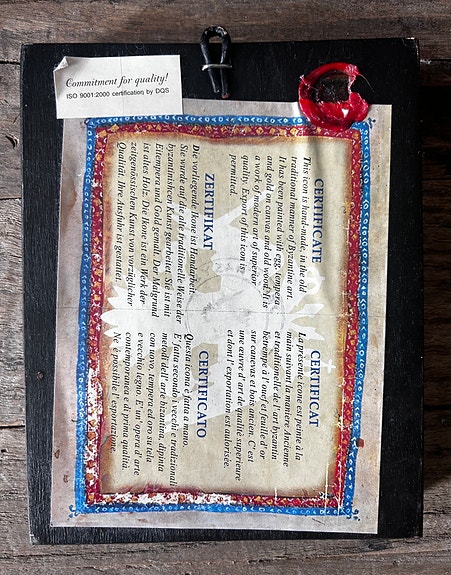 Commitment for quality!
ISO 9001:2000 certification by DQS
CERTIFICATE
This icon is hand-made, in the old
traditional manner of Byzantine art.
It has been painted with egg, tempera
and gold on canvas and old wood. It is
a work of modern art of superior
quality. Export of this icon is
permitted.
CERTIFICAT
La présente icone est peinte à la
main suivant la maniere Ancienne
et traditionelle de l'art byzantin
betrempe à l'oeuf et feuille d'or
sur canevas et bois ancien. C'est
une œuvre d'art de qualité superieure
et dont l'exportation est autorisée.
ZERTIFIKAT
Die vorliegende Ikone ist Handarbeit.
Sie wurde auf die alte traditionelle Weise der
byzantinischen Kunst gearbeitet. Sie ist mit
Eitempera und Gold gemalt. Der Malgrund
ist altes Holz. Die Ikone ist ein Werk der
zeitgenössischen Kunst von vorzüglicher
Qualität. Ihre Ausfuhr ist gestattet.
CERTIFICATO
Questa icona è fatta a mano.
E' fatta secondo i vecchi e tradizionali
metodi dell'arte bizantina, dipinta
con uovo, tempera ed oro su tela
e vecchio legno. E' un'opera d'arte
contemporanea e di prima qualità.
Ne è possibile l'esportazione.